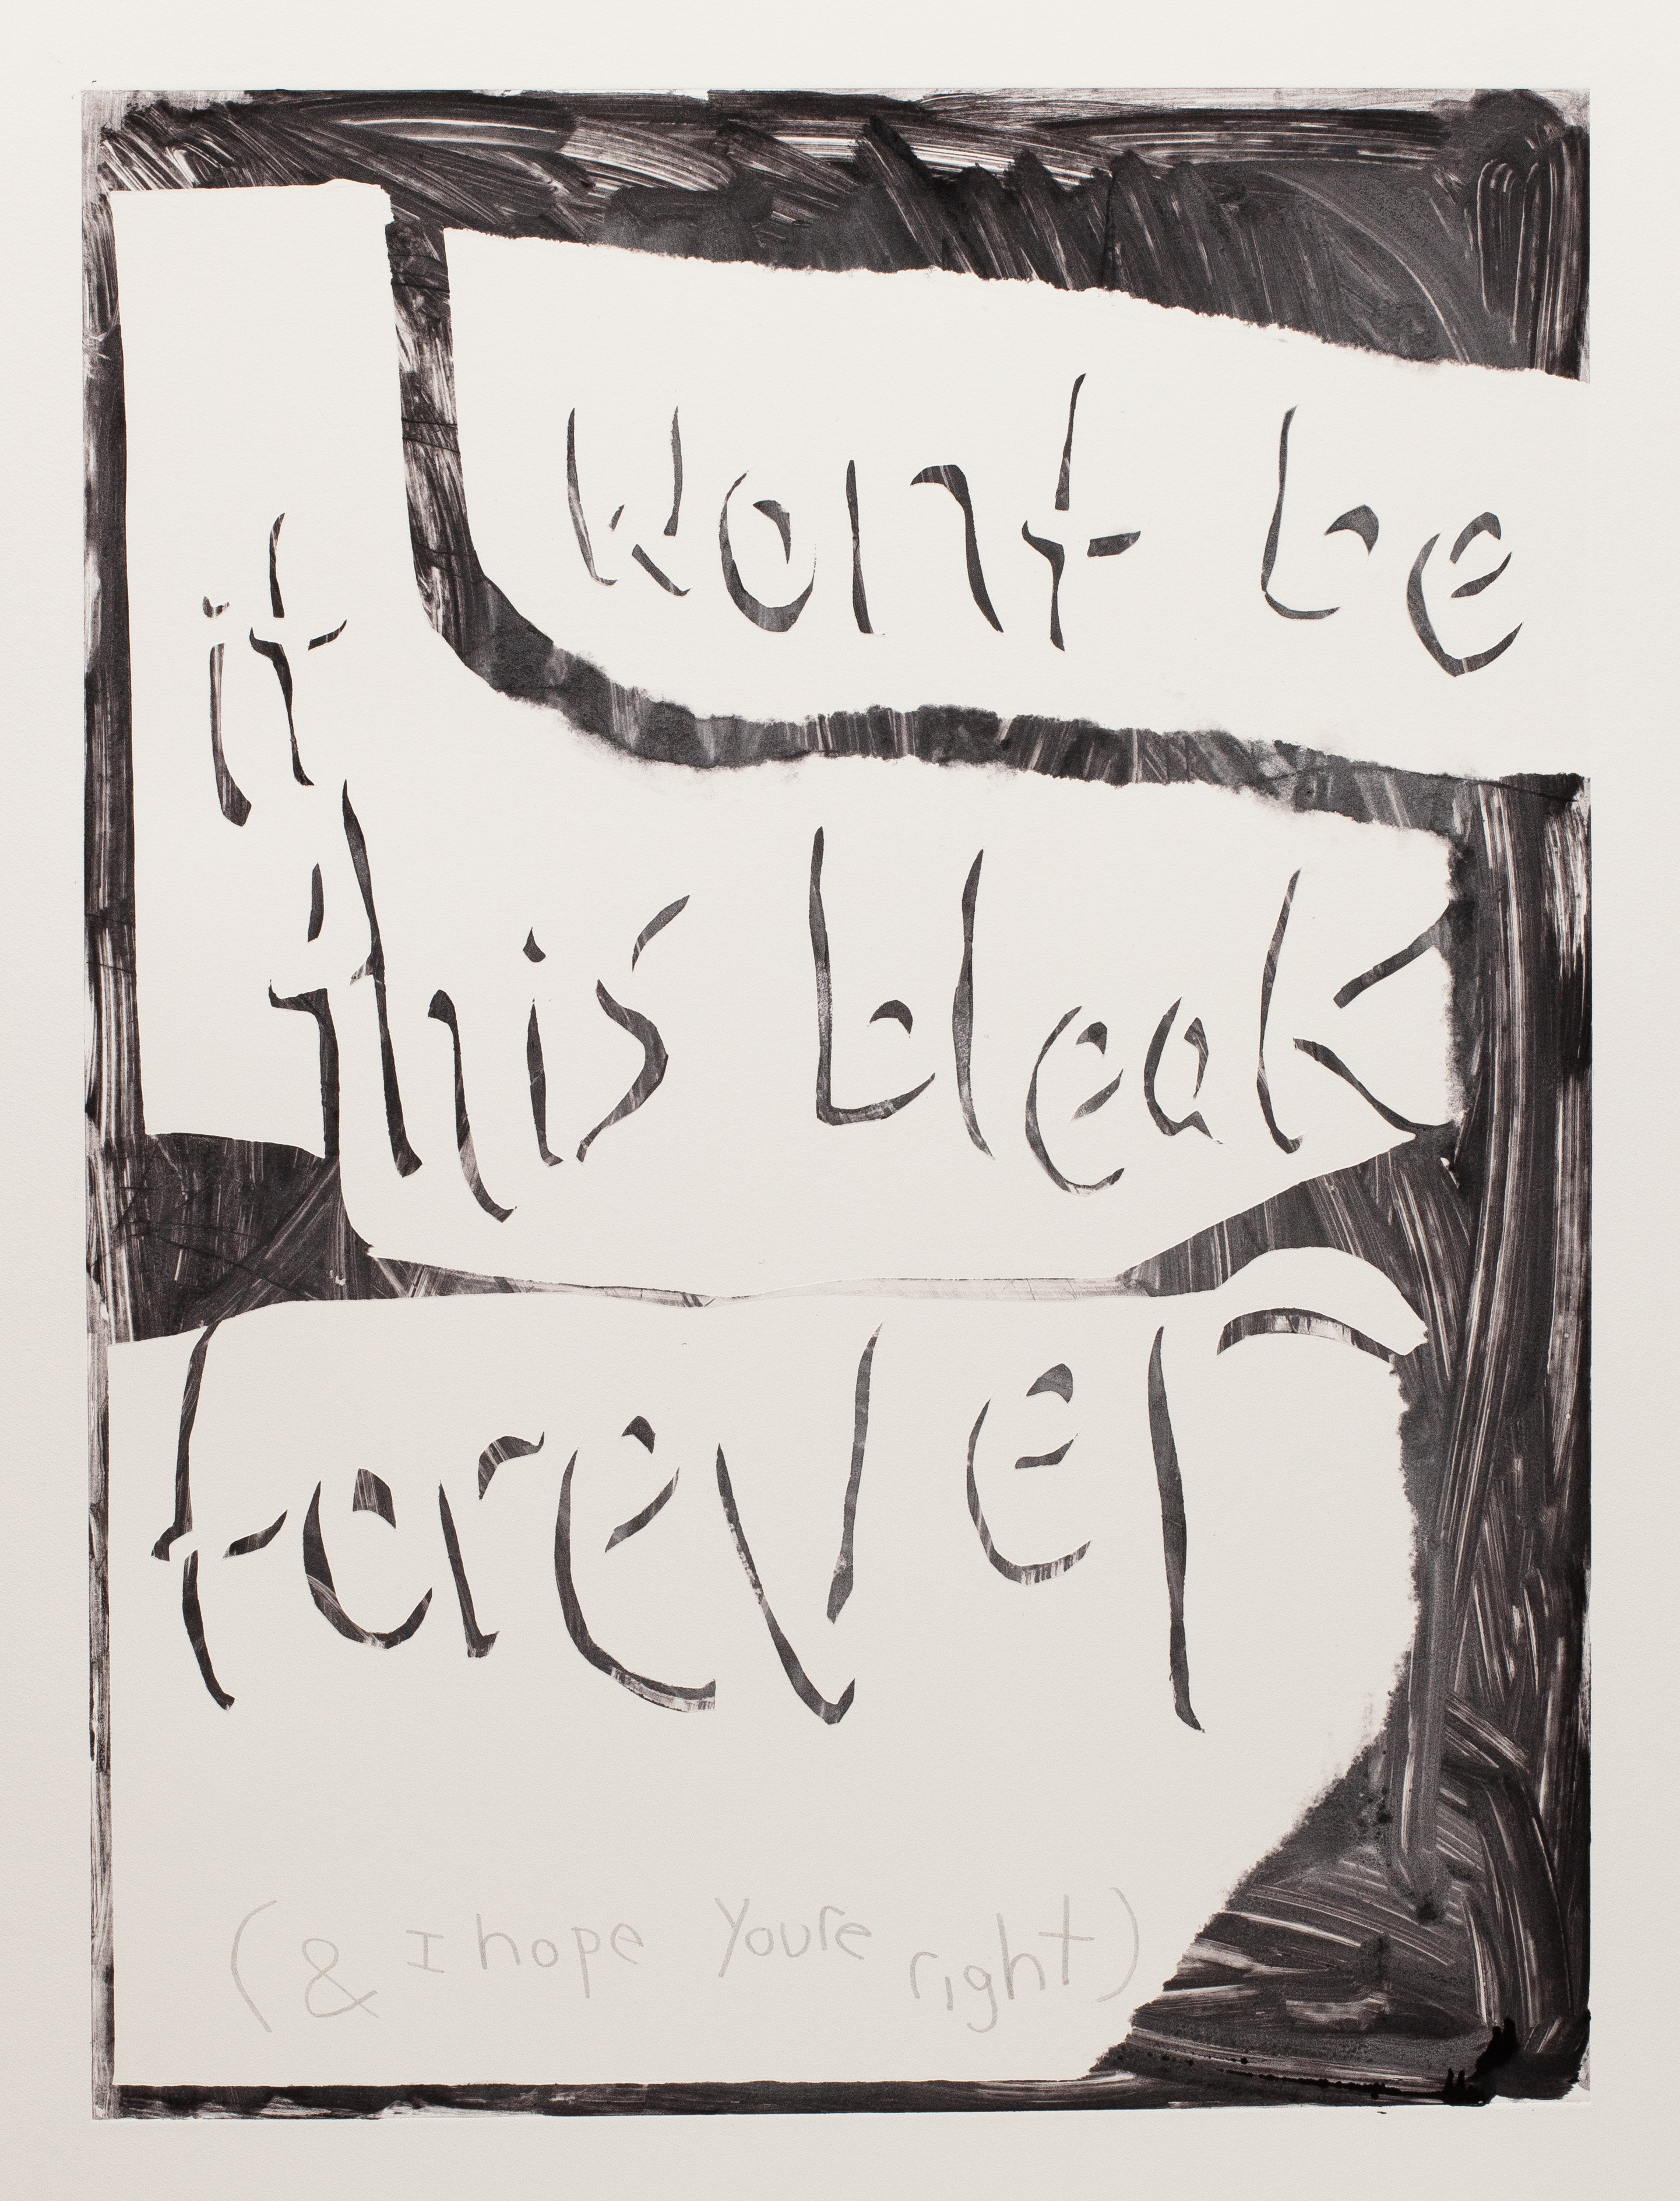 it wont be
this bleak
forever
(& I hope youre right)